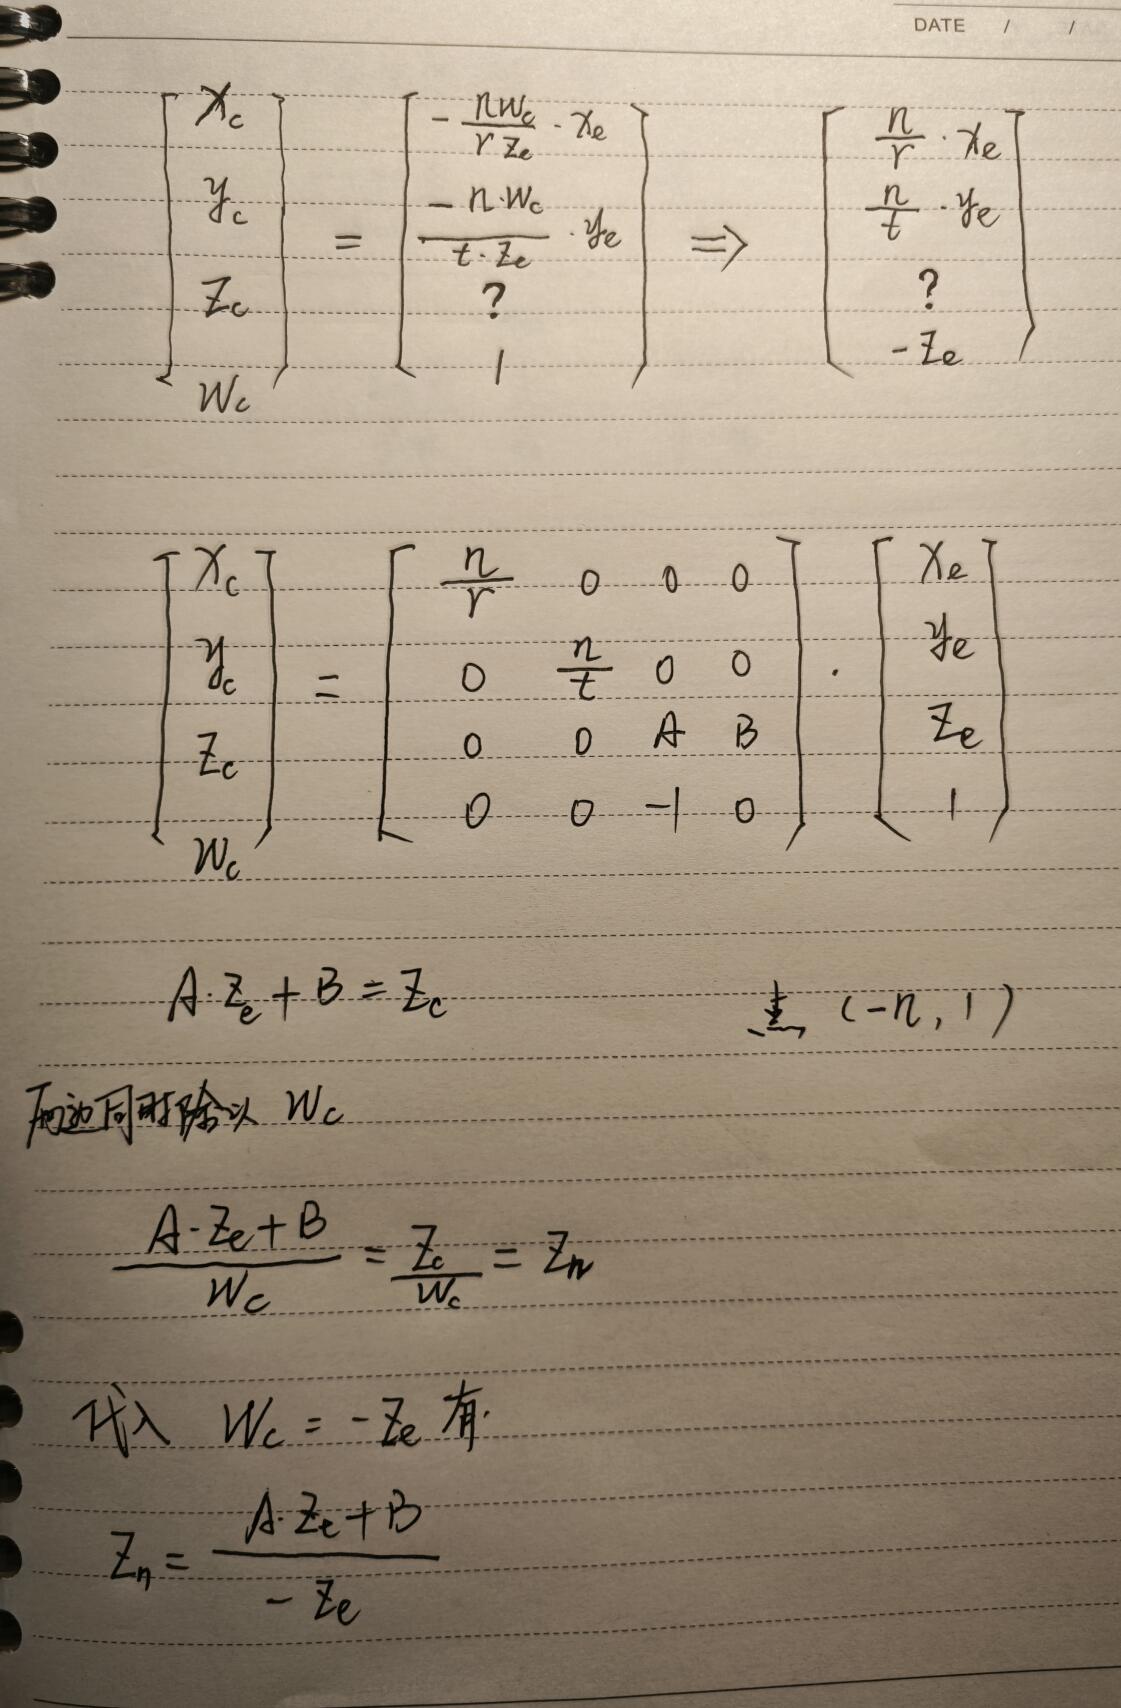 DATE / /
[x_c y_c z_c w_c] = [-\frac{nw_c}{rz_e}·x_e \frac{-n·w_c}{t·z_e}·y_e ? 1] ⇒ [\frac{n}{r}·x_e \frac{n}{t}·y_e ? -z_e]
[x_c y_c z_c w_c] = [\frac{n}{r} 0 0 0 0 \frac{n}{t} 0 0 0 0 A B 0 0 -1 0] · [x_e y_e z_e 1]
A·z_e + B = z_c 点 (-n, 1)
两边同时除以 w_c
\frac{A·z_e+B}{w_c} = \frac{z_c}{w_c} = z_n
代入 w_c = -z_e 有·
z_n = \frac{A·z_e+B}{-z_e}